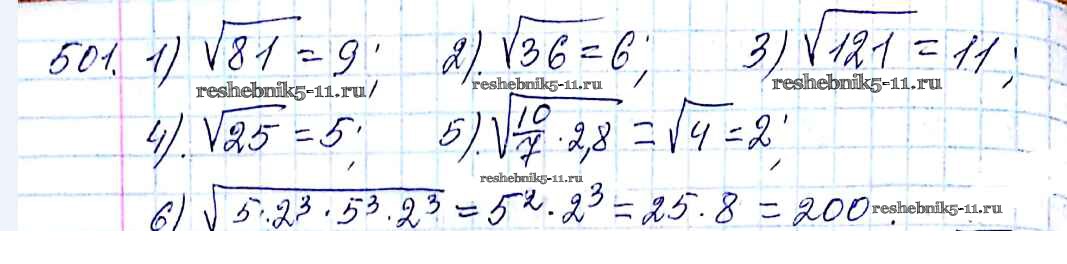 501. 1) √81 = 9; 2). √36 = 6; 3) √121 = 11;
reshebnik5-11.ru reshebnik5-11.ru reshebnik5-11.ru
4). √25 = 5; 5). √(10/7 · 2,8) = √4 = 2;
reshebnik5-11.ru
6) √(5 · 2³ · 5³ · 2³) = 5² · 2³ = 25 · 8 = 200. reshebnik5-11.ru